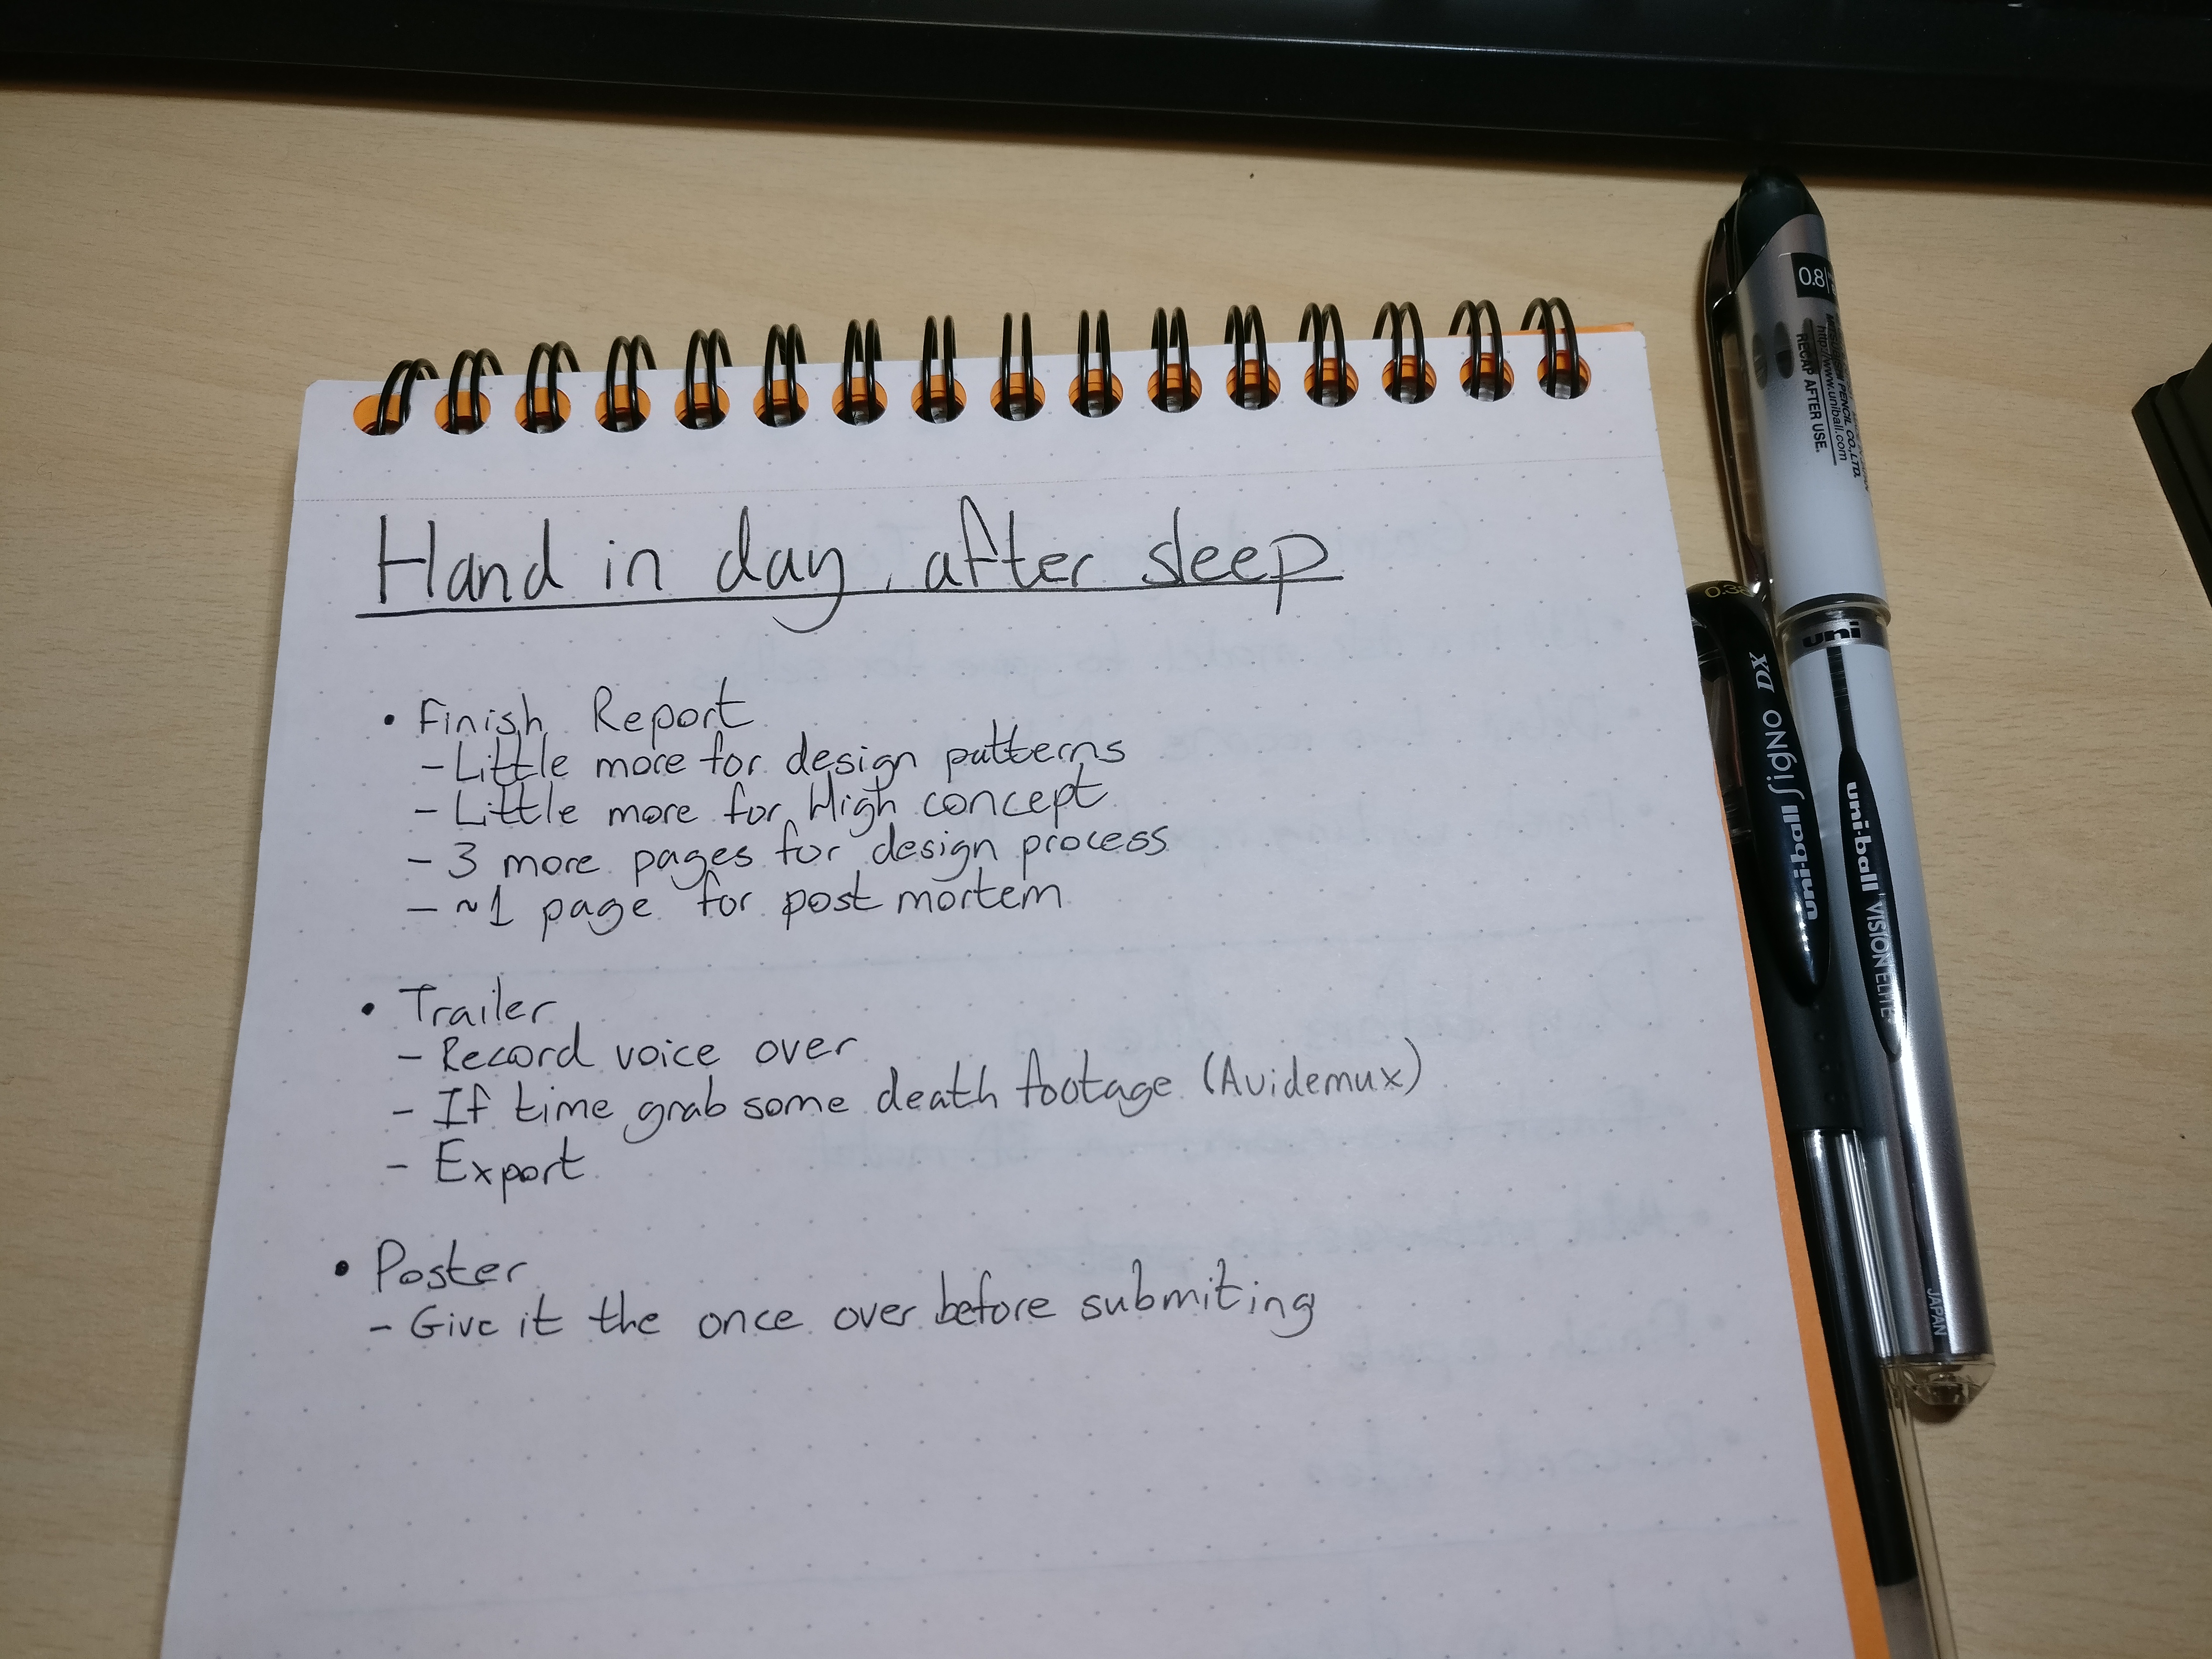 Hand in day, after sleep
• Finish Report
- Little more for design patterns
- Little more for High concept
- 3 more pages for design process
- ~1 page for post mortem
• Trailer
- Record voice over
- If time grab some death footage (Avidemux)
- Export
• Poster
- Give it the once over before submiting
0.8
MITSUBISHI PENCIL CO.,LTD.
http://www.uniball.com
RECAP AFTER USE.
uni
uni-ball VISION ELITE
JAPAN
0.38
uni-ball Signo DX